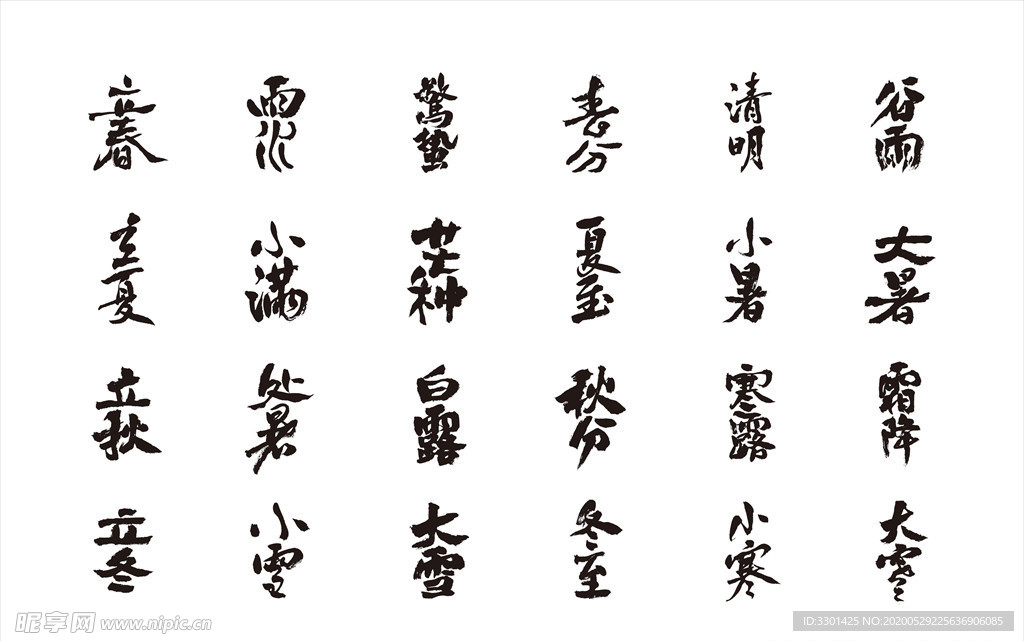 立春 雨水 驚蟄 春分 清明 谷雨
立夏 小满 芒种 夏至 小暑 大暑
立秋 处暑 白露 秋分 寒露 霜降
立冬 小雪 大雪 冬至 小寒 大寒
昵享网 www.nipic.cn
ID:3301425 NO:20200529225636906085